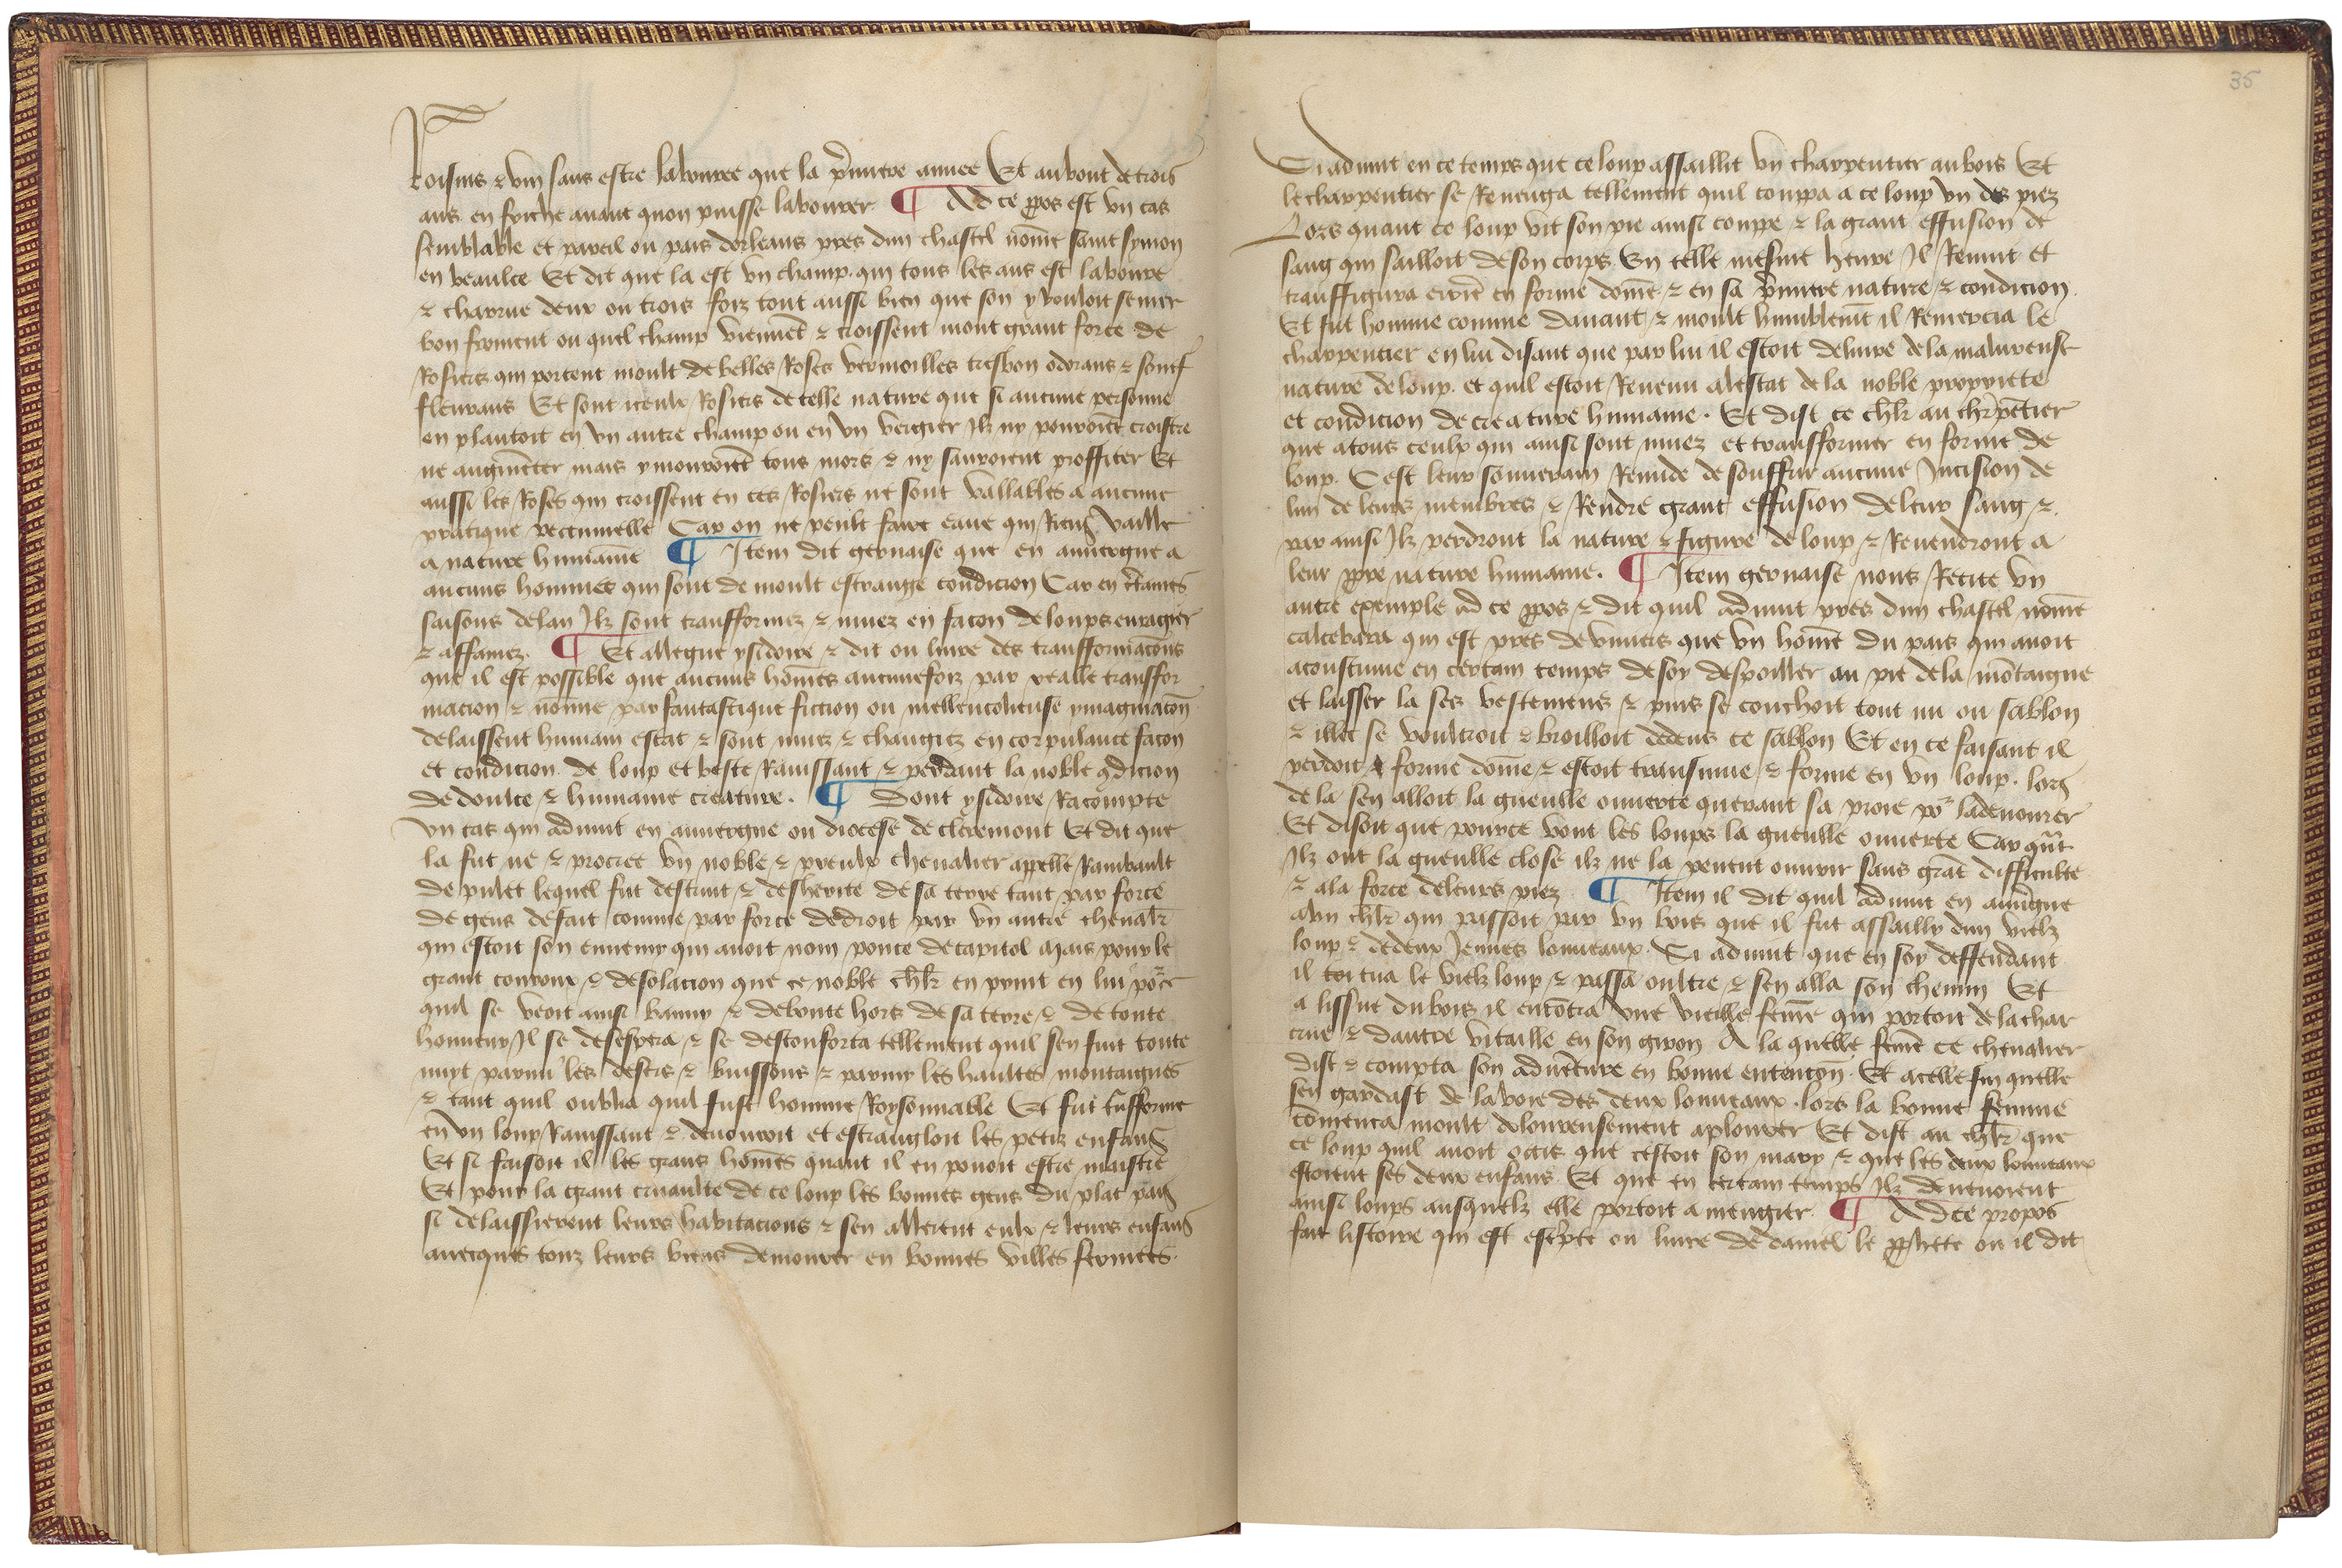 roisins & vin sans estre labouree que la p̃miere annee Et au bout de trois
ans en friche auant quon puisse labourer ¶ Ad ce ꝓpos est vn cas
semblable et pareil ou pais dorleans pres dun chastel nõme saint symon
en beaulce Et dit que la est vn champ qui tous les ans est laboure
& charrue deux ou trois foiz tout aussi bien que son y vouloit semer
bon froment ou quel champ viennẽt & croissent mont grant force de
Rosiers qui portent moult de belles Roses vermeilles tresbon odorans & souef
fleurans Et sont iceulx Rosiers de telle nature que se aucune personne
en plantoit en vn autre champ ou en vn vergier Ilz ny pourroiẽt croistre
ne augmẽter mais y mouroiẽt tous mors & ny sauroient proffiter Et
aussi les Roses qui croissent en ces Rosiers ne sont vallables a aucune
pratique peccunielle Car on ne peult faire eaue qui Riens vaille
a nature humaine ¶ Item dit geruaise que en auuergne a
aucuns hommes qui sont de moult estrange condicion Car en c̃taines
saisons de lan Ilz sont transformez & muez en facon de loups enragier
& affamez ¶ Et allegue ysidoire & dit ou liure des transformacõns
que il est possible que aucuns hõmes aucuneffoiz par realle transfor
macion & nonne par fantastique fiction ou mellencolieuse ymaginacõn
delaissent humain estat & sont muez & changiez en corpulance facon
et condicion de loup et beste Rauissant & perdant la noble ꝯdicion
de doulce & humaine creature . ¶ Dont ysidoire Racompte
vn cas qui aduint en auuergne ou diocese de clermont Et dit que
la fut ne & procree vn noble & preulx cheualier appelle Raimbault
de pulet lequel fut destruit & desherite de sa terre tant par force
de gens de fait comme par force de droit par vn autre cheualr̃
qui estoit son ennemy qui auoit nom ponce de capitol Mais pour le
grant courroux & desolacion que ce noble chl̃r en print en lui põr ce
quil se veoit ainsi banny & deboute hors de sa terre & de toute
honneur Il se desespera & se desconforta tellement quil sen fuit toute
nuyt parmi les desers & buissons & parmy les haultes montaignes
& tant quil oublia quil fust homme Roysonnable Et fut t̃nsforme
en vn loup Rauissant & deuouroit et estrangloit les petiz enfans
Et si faisoit il les grans hõmes quant il en pouoit estre maistre
Et pour la grant cruaulte de ce loup les bonnes gens du plat pais
si delaissierent leurs habitacions & sen allerent eulx & leurs enfans
auecques touz leurs biens demourer en bonnes villes fermees .
35
Si aduint en ce temps que ce loup assaillit vn charpentier au bois Et
le charpentier se Reuenga tellement quil couppa a ce loup vn des piez
Lors quant ce loup vit son pie ainsi coupe & la grant effusion de
sang qui sailloit de son corps En celle mesme heure Il Reuint et
transfigura en forme dome & en sa p̃miere nature & condicion .
Et fut homme comme dauant & moult humblemẽt il Remercia le
charpentier en lui disant que par lui il estoit deliure de la maleureuse
nature de loup . et quil estoit Reuenu a lestat de la noble propriete
et condicion de creature humaine . Et dist ce chl̃r au chr̃pẽtier
que a tous ceulx qui ainsi sont muez et transformer en forme de
loup . C est leur souuerain Remide de souffrir aucune Incision de
lun de leurs membres & Rendre grant effusion de leur sang &
par ainsi Ilz perdront la nature & figure de loup & Reuendront a
leur ꝓpre nature humaine . ¶ Item geruaise nous Recite vn
autre exemple ad ce ꝓpos & dit quil aduint pres dun chastel nõme
calcebara qui est pres de viuiers que vn hõme du pais qui auoit
acoustume en certain temps de soy despoiller au pie de la mõtaigne
et laisser la ses vestemens & puis se couchoit tout nu ou sablon
& illec se voultroit & broilloit dedens ce sablon Et en ce faisant il
perdoit forme dome & estoit transmue & forme en vn loup . lors
de la sen alloit la gueulle ouuerte querant sa proie põr la deuourer
Et disoit que pource vont les loups la gueulle ouuerte Car qñt
Ilz ont la gueulle close ilz ne la peuent ouurir sans grãt difficulte
& a la force de leurs piez ¶ Item il dit quil aduint en auũgne
a vn chl̃r qui passoit par vn bois que il fut assailly dun vielz
loup & de deux Jeunes louueaux . Si aduint que en soy deffendant
il tua le vielz loup & passa oultre & sen alla son chemin Et
a lissue du bois il encõtra vne vieille fem̃e qui portoit de la char
crue & dautre vitaille en son giron A la quelle fem̃e ce cheualier
dist & compta son aduẽture en bonne entencõn . Et a celle fin quelle
sen gardast de la voie des deux louueaux . lors la bonne femme
cõmenca moult doloureusement a plourer Et dist au chl̃r que
ce loup quil auoit occis que cestoit son mary & que les deux louueaux
estoient ses deux enfans . Et que en certain temps Ilz deuenoient
ainsi loups ausquelz elle portoit a mengier . ¶ Ad ce propos
fait listoire qui est esc̃pte ou liure de daniel le ꝓphete ou il dit